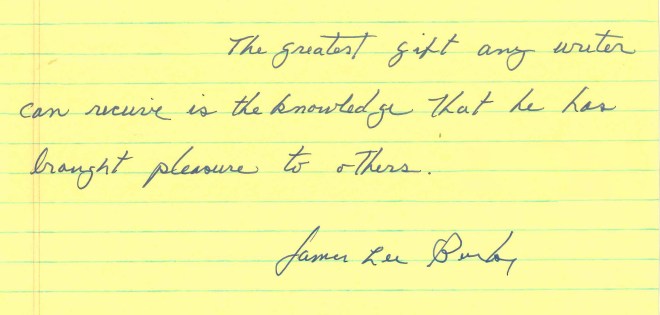 The greatest gift any writer
can receive is the knowledge that he has
brought pleasure to others.
James Lee Burke